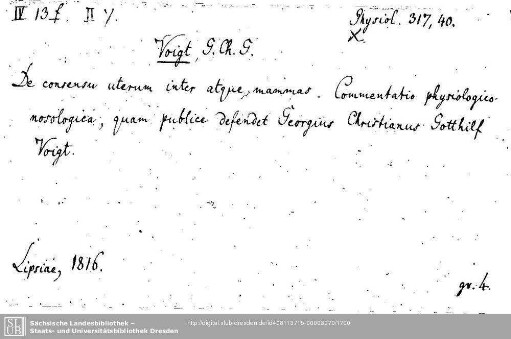 IV 13f. II γ.
Physiol. 317, 40.
X.
Voigt, G. Ch. G.
De consensu uterum inter atque mammas. Commentatio physiologico-
nosologica, quam publice defendet Georgius Christianus Gotthilf
Voigt.
Lipsiae, 1816.
gr. 4.
SLUB
Sächsische Landesbibliothek –
Staats- und Universitätsbibliothek Dresden